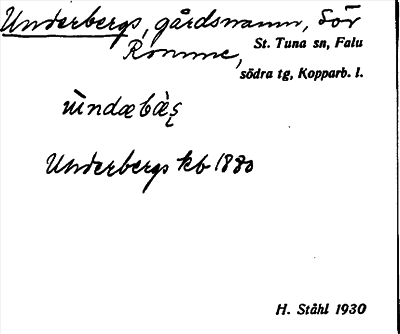 Underbergs, gårdsnamn, Sör
Romme,
St. Tuna sn, Falu
södra tg, Kopparb. l.
ùndæbàs̨
Underbergs kb 1880
H. Ståhl 1930